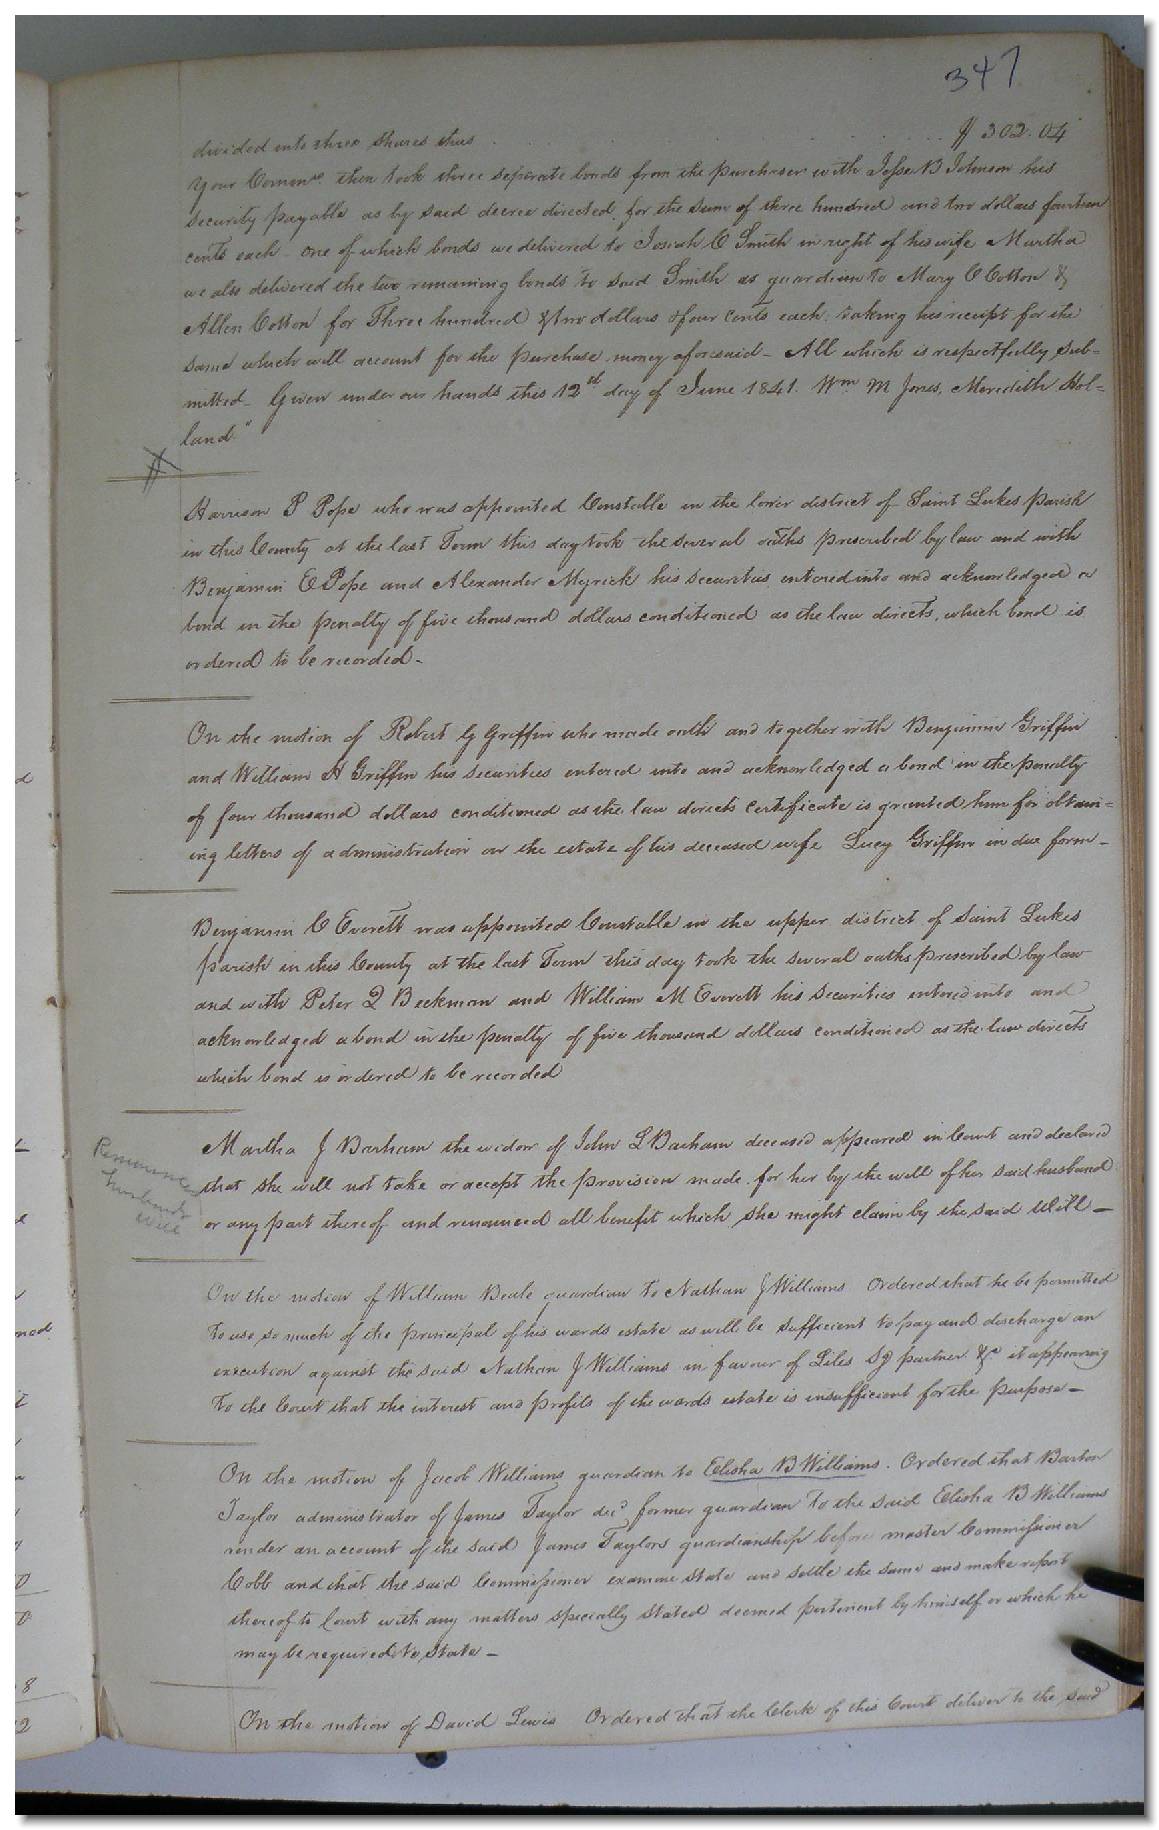 347
divided into three shares thus . . . . . . . $ 302.04
Your Commrs. then took three seperate bonds from the purchaser with Jesse B Johnson his
security payable as by said decree directed for the sum of three hundred and two dollars fourteen
cents each - one of which bonds we delivered to Josiah C Smith in right of his wife Martha
we also delivered the two remaining bonds to said Smith as guardian to Mary C Cotton &
Allen Cotton for Three hundred & two dollars & four cents each; taking his receipt for the
same which will account for the purchase money aforesaid - All which is respectfully sub=
mitted - Given under our hands this 12th day of June 1841. Wm M Jones, Meredith Hol=
land"
Harrison P Pope who was appointed Constable in the lower district of Saint Lukes Parish
in this County at the last Term this day took the several oaths prescribed by law and with
Benjamin E Pope and Alexander Myrick his securities entered into and acknowledged a
bond in the penalty of five thousand dollars conditioned as the law directs, which bond is
ordered to be recorded -
On the motion of Robert G Griffin who made oath and together with Benjamin Griffin
and William A Griffin his securities entered into and acknowledged a bond in the penalty
of four thousand dollars conditioned as the law directs certificate is granted him for obtain=
ing letters of administration on the estate of his deceased wife Lucy Griffin in due form -
Benjamin C Everett was appointed Constable in the upper district of Saint Lukes
parish in this County at the last Term this day took the several oaths prescribed by law
and with Peter Q Beckman and William M Everett his securities entered into and
acknowledged a bond in the penalty of five thousand dollars conditioned as the law directs
which bond is ordered to be recorded
Martha J Barham the widow of John L Barham deceased appeared in Court and declared
that she will not take or accept the provision made for her by the will of her said husband
or any part thereof and renounced all benefit which she might claim by the said Will -
Renounces
husbands
will
On the motion of William Beale guardian to Nathan J Williams Ordered that he be permitted
to use so much of the principal of his wards estate as will be sufficient to pay and discharge an
execution against the said Nathan J Williams in favour of Liles Sg partner &c it appearing
to the Court that the interest and profits of the wards estate is insufficient for the purpose -
On the motion of Jacob Williams guardian to Elisha B Williams. Ordered that Barton
Taylor administrator of James Taylor decd former guardian to the said Elisha B Williams
render an account of the said James Taylors guardianship before master Commissioner
Cobb and that the said Commissioner examine state and settle the same and make report
thereof to Court with any matters specially stated deemed pertinent by himself or which he
may be required to state -
On the motion of David Lewis Ordered that the Clerk of this Court deliver to the said